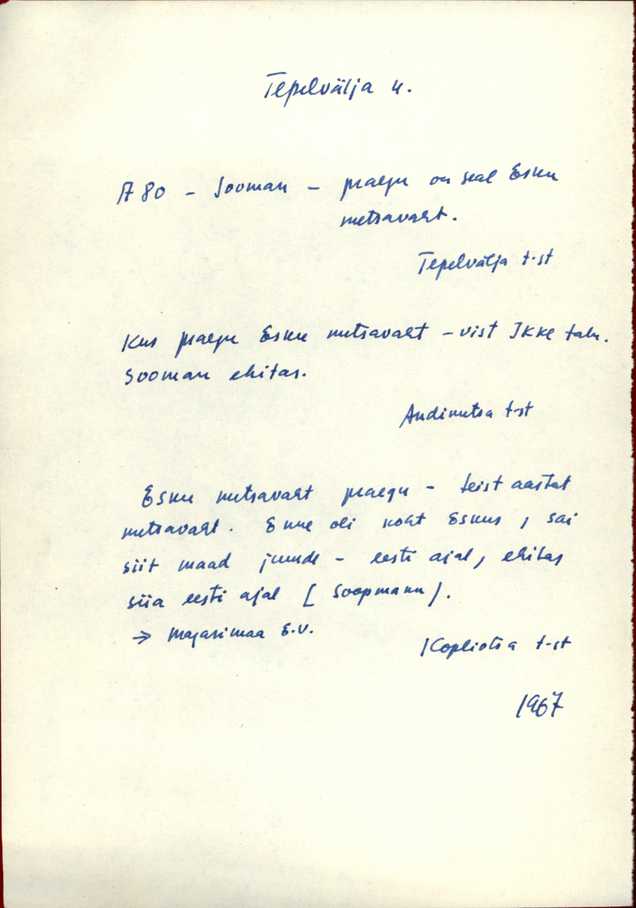 Tepelvälja k.
A 80 – Sooman – praegu on seal Esku
metsavaht.
Tepelvälja t-st
Kus praegu Esku metsavaht – vist Ikke talu.
Sooman ehitas.
Andimetsa t-st
Esku metsavaht praegu – teist aastat
metsavaht. Enne oli koht Eskus, sai
siit maad juurde – eesti ajal, ehitas
siia eesti ajal [Soopmann].
→ Majasimaa E.V.
Kopliotsa t-st
1967